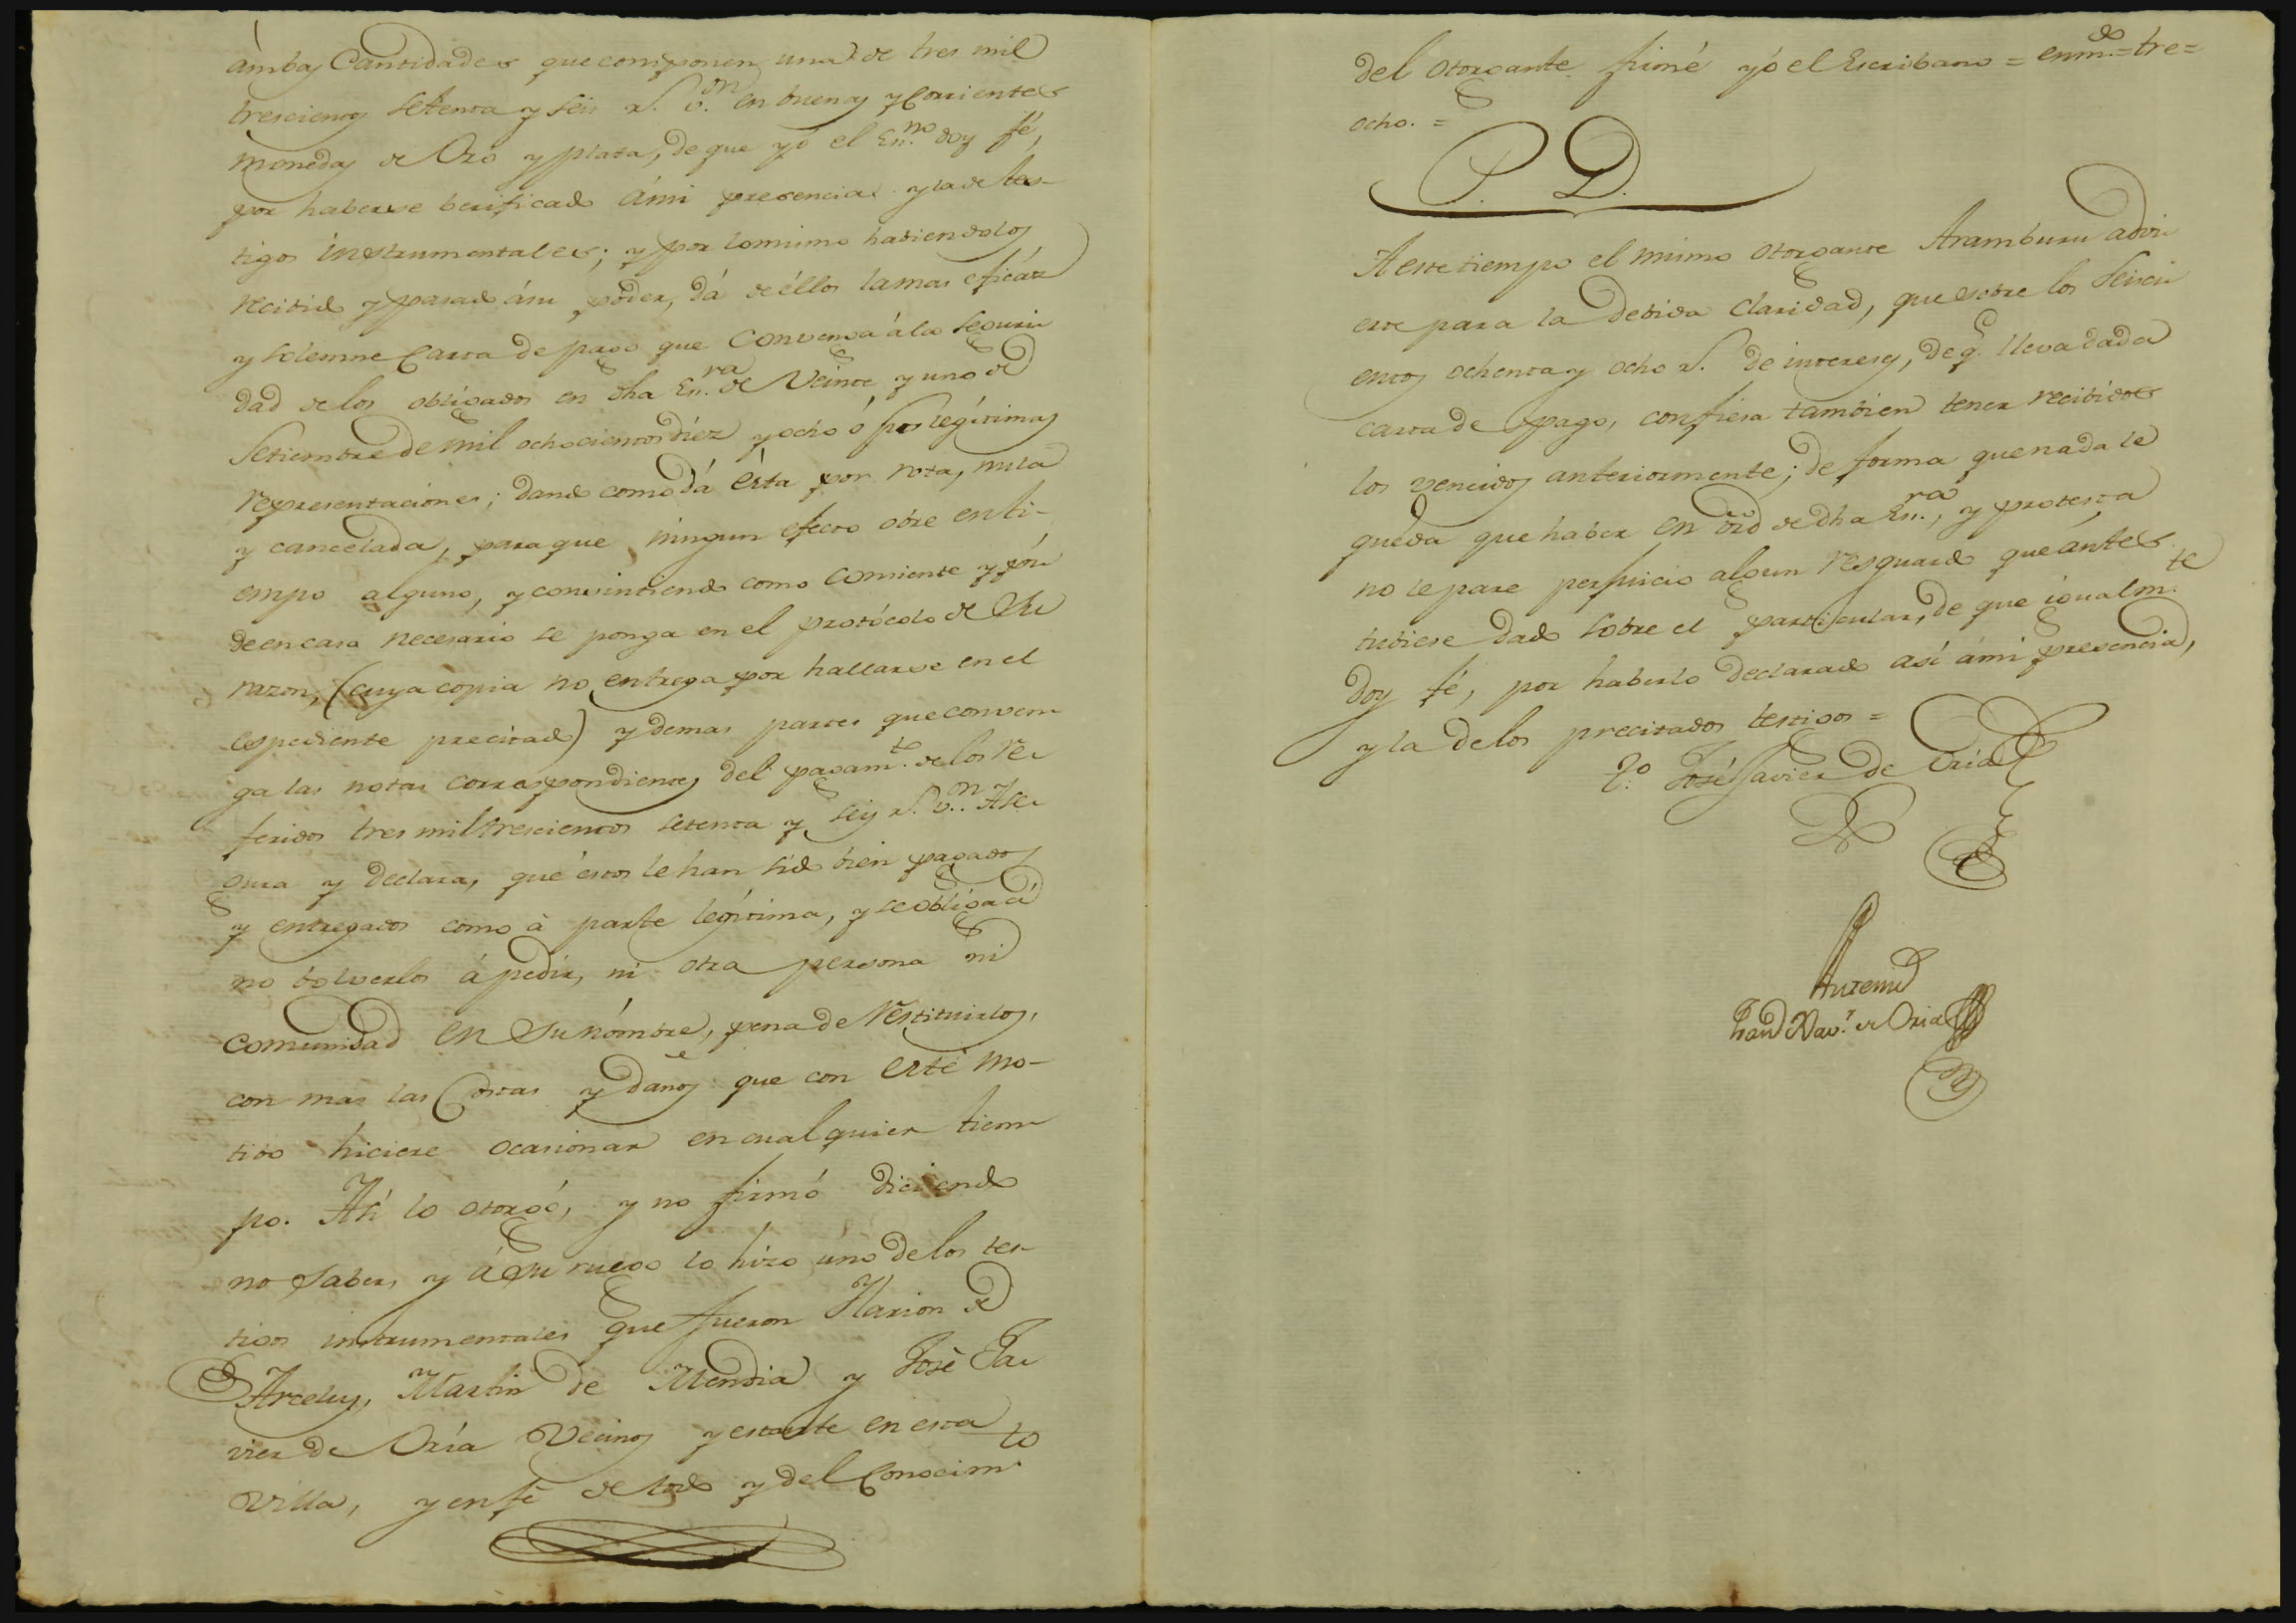 ámbas Cantidades que componen una de tres mil
trescientos setenta y seis r.s v.on en buenas y Corrientes
monedas de Oro y plata, de que yó el Es.no doy fé,
por haberse berificado ámi presencia y la de tes-
tigos instrumentales; y por lo mismo habiendolos
recibido y pasado ásu poder, dá de éllos la mas eficáz
y solemne Carta de pago que Convenga á la Seguri-
dad de los obligados en dha Es.ra de Veinte y uno de
Setiembre de mil ochocientos diez y ocho ó sus legítimas
representaciones; dando como dá ésta por rota, nula
y cancelada, para que ningun efecto obre en ti-
empo alguno, y consintiendo como Consiente y pón-
de en caso necesario se ponga en el protócolo de Su
razon, (cuya copia no entrega por hallarse en el
espediente precitado) y demas partes que conven-
ga las notas correspondientes del pagam.to de los re-
feridos tres mil trescientos setenta y seis r.s v.n Ase-
gura y declara, qué éstos le han sido bien pagados
y entregados como á parte legítima, y se obliga á
no bolverlos á pedir, ni otra persona ni
comunidad en su nómbre, pena de restituirlos,
con mas las Costas y daños que con esté mo-
tibo hiciere ocasionar en cualquier tiem-
po. Así lo otorgó, y no firmó diciendo
no saber, y á su ruego lo hizo uno de los tes-
tigos instrumentales que fueron Ilarion de
Arcelus, Martin de Mendia y José Ja-
vier de Oría Vecinos y estante en esta
Villa, y en fé de todo y del Conocim.to
del otorgante firmé yó el Escribano = enm.do = tre =
ocho. =
P. D.
A este tiempo el mismo otorgante Aramburu advi-
erte para la debida claridad, que sobre los seisci-
entos ochenta y ocho r.s de intereses, de q.e lleva dada
carta de pago, confiesa tambien tener recibidos
los vencidos anteriormente; de forma que nada le
quéda que haber en órd de dha Es.ra, y protesta
no le pare perjuicio algun resguardo que ántes
tubiese dado sobre el particular, de que igualm.te
doy fé, por haberlo declarado así ámi presencia,
y la de los precitados testigos =
T.o José Javier de Oria
Antemi
Juan Xav.r de Oria